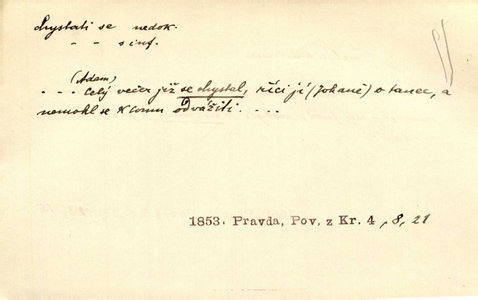 chystati se nedok.
" " s inf.
(Adam)
. . . Celý večer již se chystal, říci jí (Johaně) o tanec, a
nemohl se k tomu odvážiti. . . .
1853. Pravda, Pov. z Kr. 4, 8, 21